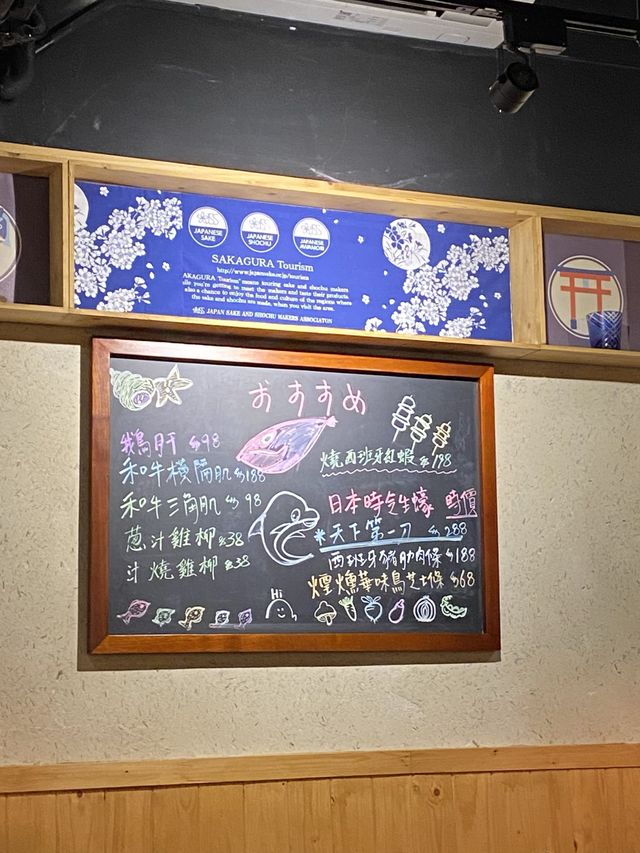 JAPANESE SAKE
JAPANESE SHOCHU
JAPANESE AWAMORI
SAKAGURA Tourism
http://www.japansake.or.jp/tourism
AKAGURA Tourism" means touring sake and shochu makers
ile you're getting to meet the makers and taste their products.
also a chance to enjoy the food and culture of the regions where
the sake and shochu are made, when you visit the area.
JAPAN SAKE AND SHOCHU MAKERS ASSOCIATON
おすすめ
鵝肝 $98
和牛橫隔肌 $188
和牛三角肌 $98
蔥汁雞柳 $38
汁燒雞柳 $38
燒西班牙紅蝦 $198
日本時令生蠔 時價
*天下第一刀 $288
西班牙豬肋肉條 $188
煙燻華味鳥芝士條 $68
Hi